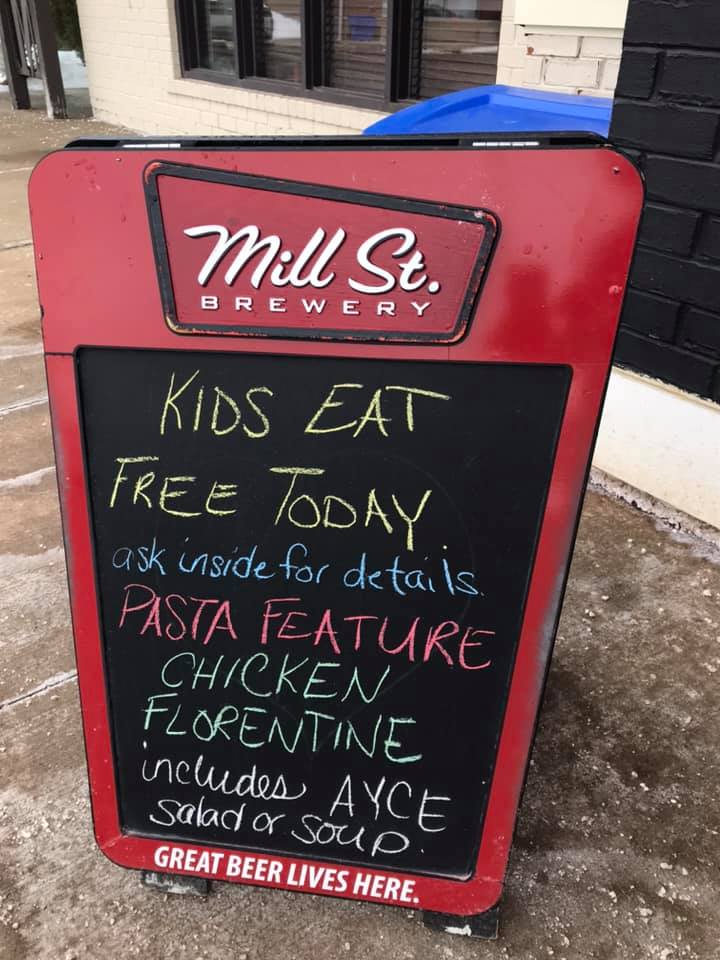 Mill St.
BREWERY
KIDS EAT
FREE TODAY
ask inside for details.
PASTA FEATURE
CHICKEN
FLORENTINE
includes AYCE
salad or soup.
GREAT BEER LIVES HERE.